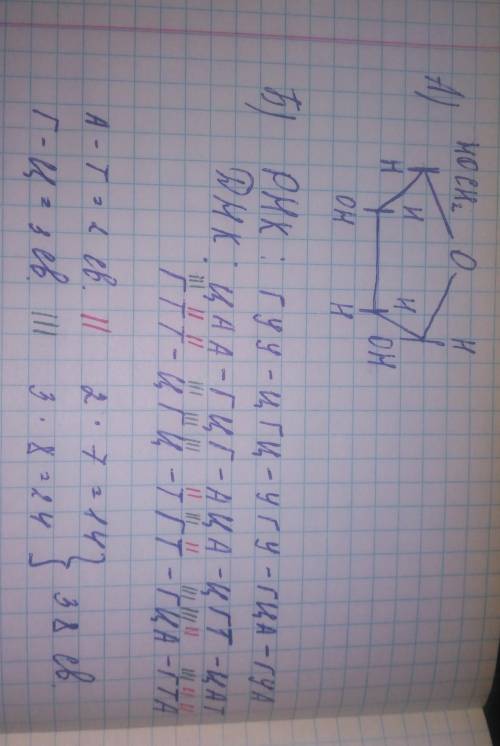 А)
HOCH₂ O H
H H H OH
OH H
Б) РНК: ГУУ-ЦГЦ-УГУ-ГЦА-ГУА
ДНК: ЦАА-ГЦГ-АЦА-ЦГТ-ЦАТ
ГТТ-ЦГЦ-ТГТ-ГЦА-ГТА
А-Т = 2 св. || 2·7=14 }
Г-Ц = 3 св. ||| 3·8=24 } 38 св.